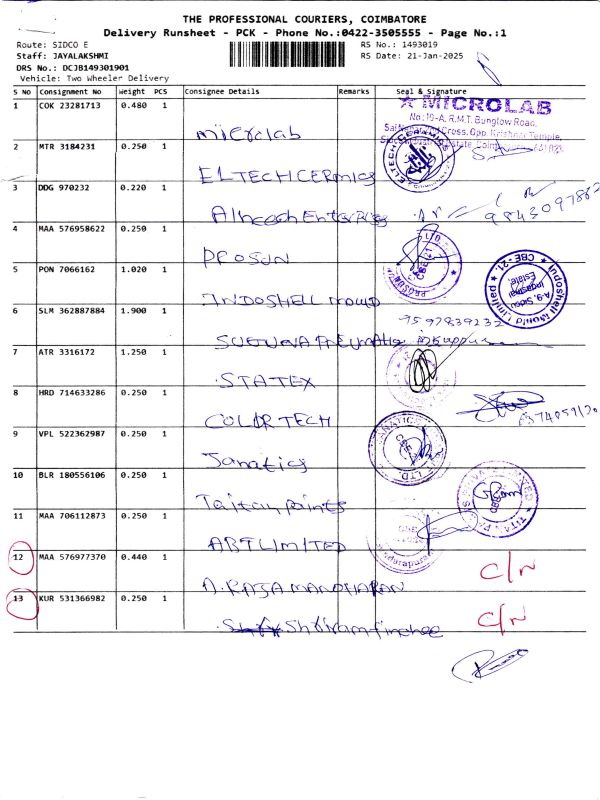 THE PROFESSIONAL COURIERS, COIMBATORE
Delivery Runsheet - PCK - Phone No.:0422-3505555 - Page No.:1
Route: SIDCO E
RS No.: 1493019
Staff: JAYALAKSHMI
RS Date: 21-Jan-2025
DRS No.: DCJB149301901
Vehicle: Two Wheeler Delivery
S NO Consignment No Weight PCS Consignee Details Remarks Seal & Signature
1 COK 23281713 0.480 1 microlab
★ MICROLAB
No:19-A, R.M.T. Bunglow Road,
Cross, Opp. Krishna Temple,
2 MTR 3184231 0.250 1 ELTECHCERmics
ELTECH CERAMICS
3 DDG 970232 0.220 1 Enterprises
4 MAA 576958622 0.250 1 PROSUN
PROSUN
CBE-21
5 PON 7066162 1.020 1 INDOSHELL mould
Indoshell Mould Limited
A-9, Sidco
Industrial
Estate,
CBE-21.
6 SLM 362887884 1.900 1 SUGUNA PNEUMATIC
9597839232
7 ATR 3316172 1.250 1 STATEX
8 HRD 714633286 0.250 1 COLORTECH
9 VPL 522362987 0.250 1 Janatics
10 BLR 180556106 0.250 1 Taitan Paints
11 MAA 706112873 0.250 1 ABT LIMITED
12 MAA 576977370 0.440 1 A. RAJA MANOHARAN C/N
13 KUR 531366982 0.250 1 Shriram finance C/N